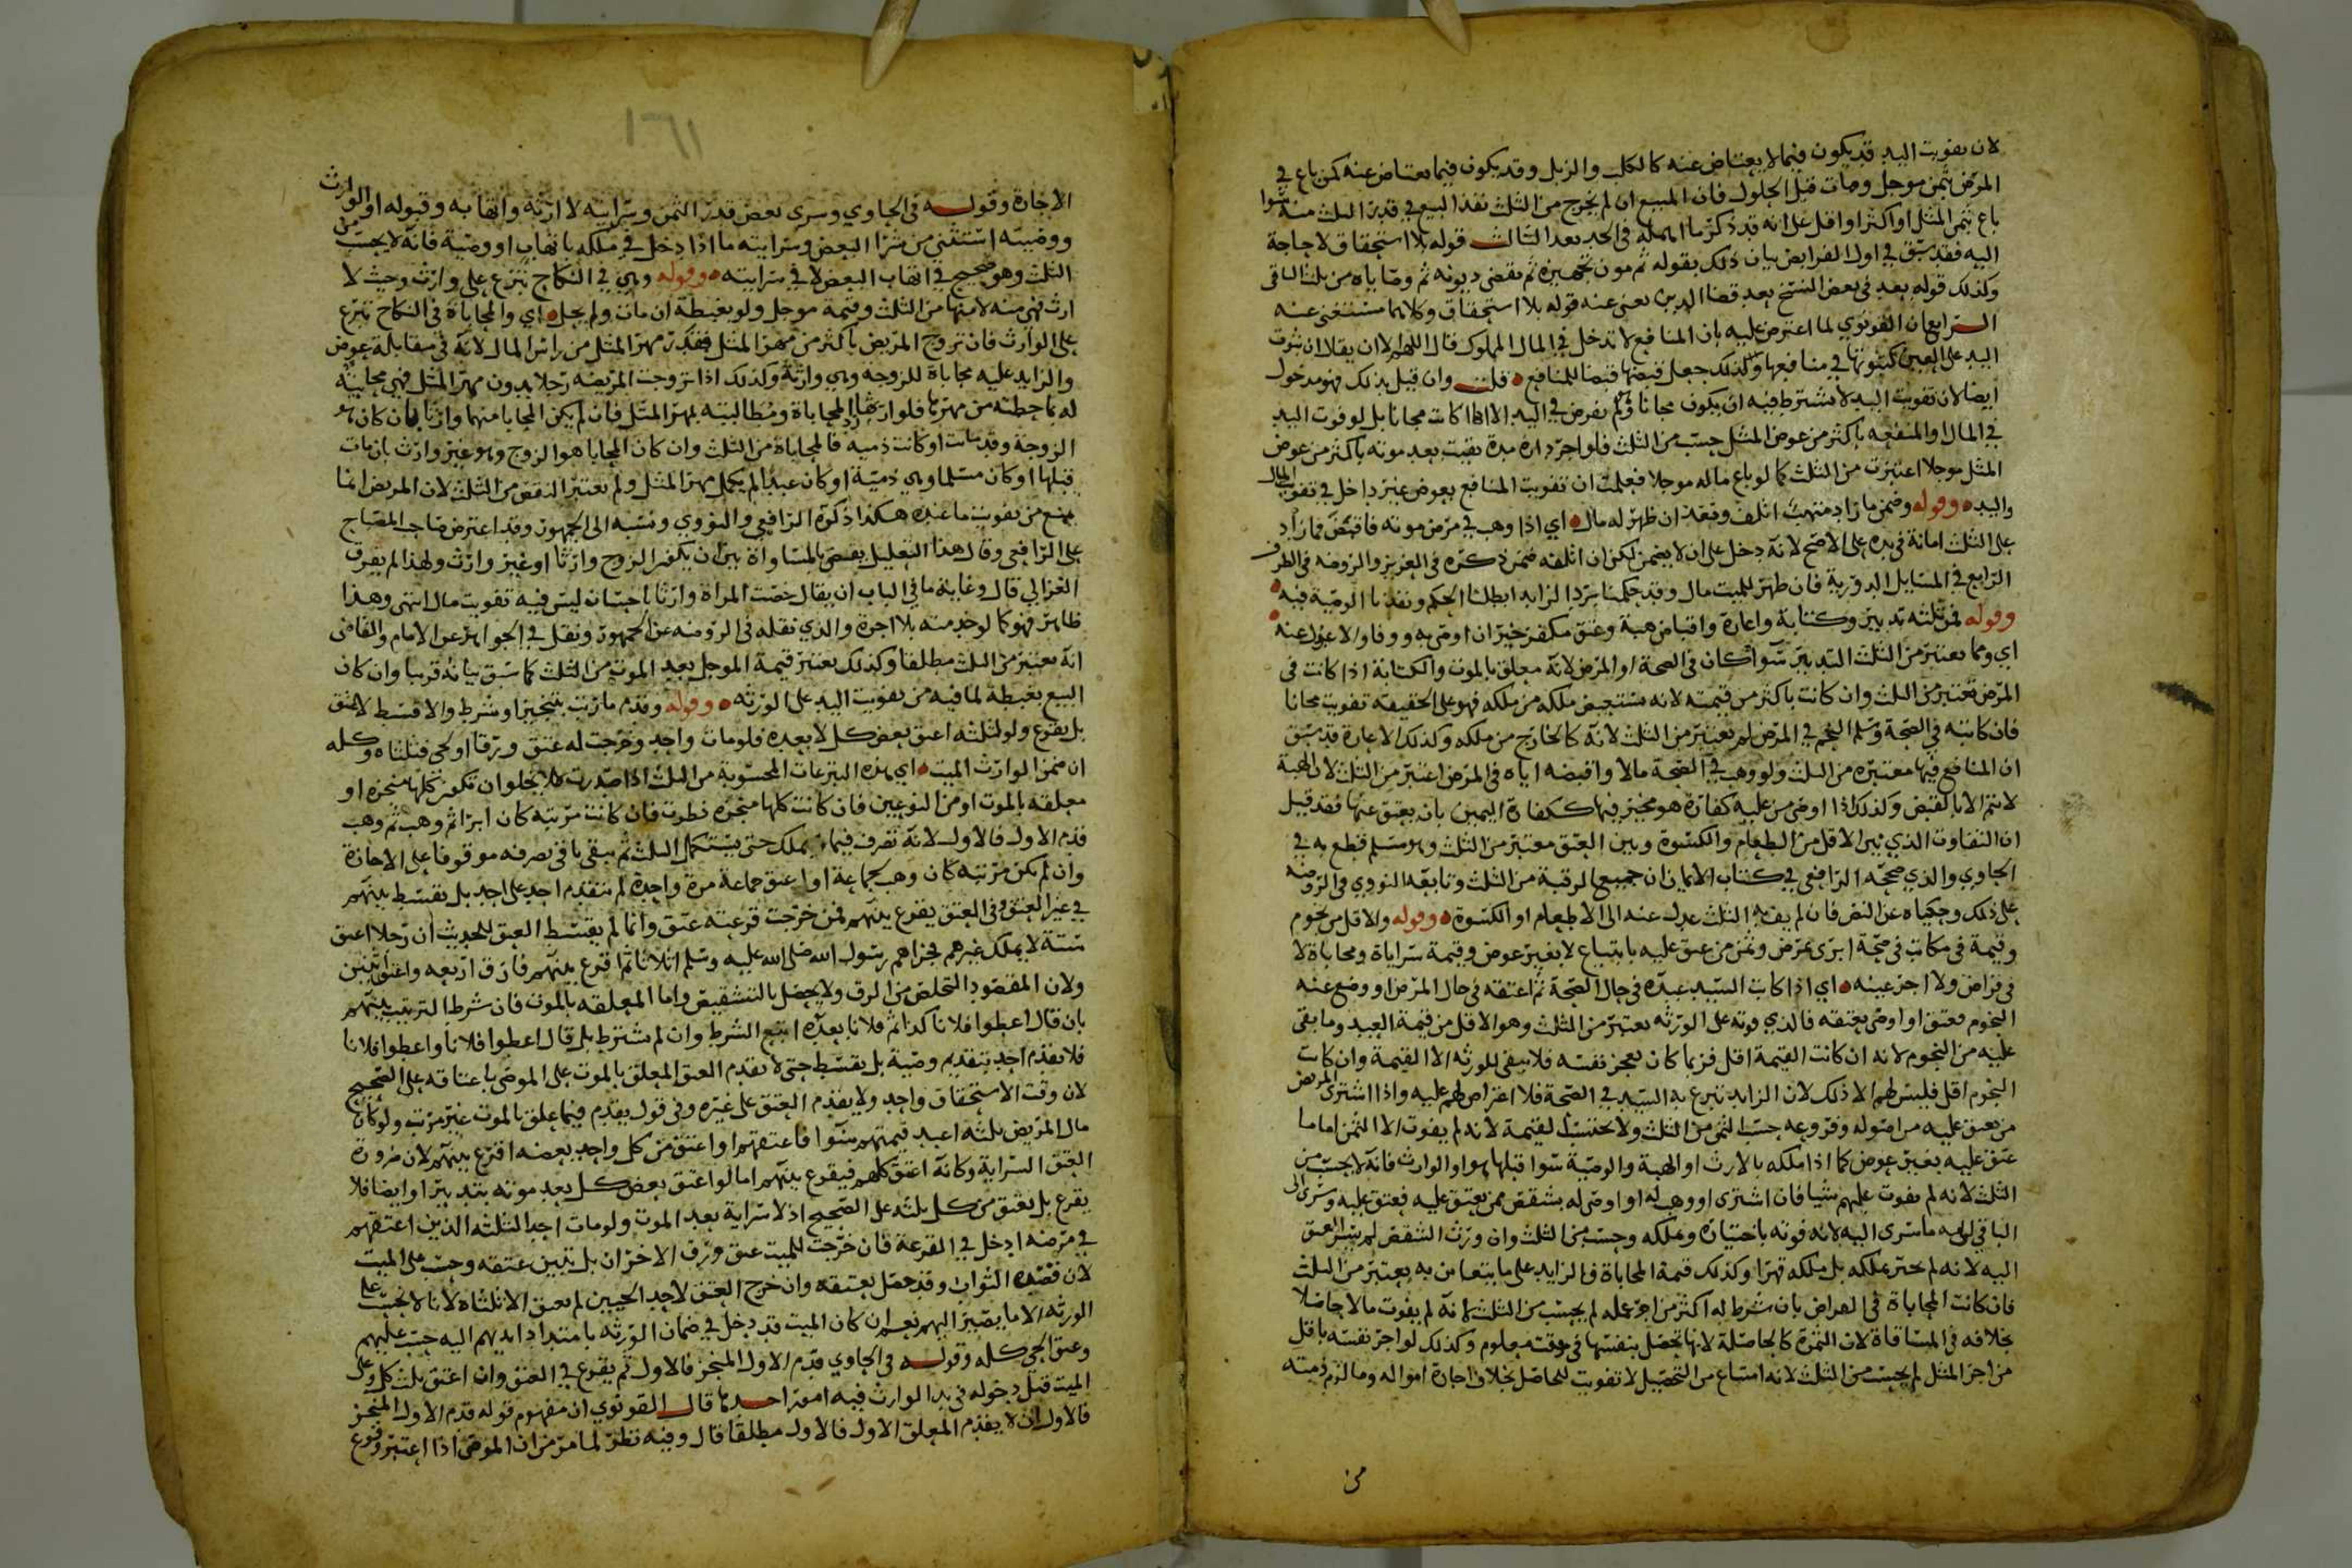 لان تفويت اليد قد يكون فيما لا يعتاض عنه كالكلب والزبل وقد يكون فيما يعتاض عنه كمن باع في
المرض بثمن موجل ومات قبل الحلول فان المبيع ان لم يخرج من الثلث نفذ البيع في قدر الثلث منه سوا
باع بثمن المثل او اكثر او اقل على انه قد ذكر ما اهمله في الحد بعد الثالث قوله بلا استحقاق لا حاجة
اليه فقد سبق في اول الفرايض بيان ذلك بقوله ثم مون تجهيزه ثم تقضى ديونه ثم وصاياه من ثلث الباقى
وكذلك قوله بعد في بعض النسخ بعد قضا الدين يعنى عنه قوله بلا استحقاق وكلاهما مستغنى عنه
الرابع ان القونوي لما اعترض عليه بان المنافع لا تدخل في المال المملوك قال اللهم الا ان يقال ان ثبوت
اليد على العين كثبوتها في منافعها وكذلك جعل قبضها قبضا للمنافع قلت وان قيل بذلك فهو مدخول
ايضا لان تفويت اليد لا يشترط فيه ان يكون مجانا ولم يفرض في اليد الا اذا كانت مجانا بل لو فوت اليد
في المال او المنفعه باكثر من عوض المثل حسب من الثلث فلو اجر داره مدة بقيت بعد موته باكثر من عوض
المثل موجلا اعتبرت من الثلث كما لو باع ماله موجلا فعلمت ان تفويت المنافع بعوض غير داخل في تفويت المال
واليد وقوله وضمن ما زاد متهب اتلف ونفذ ان ظهر له مال اي اذا وهب في مرض موته فاقبض فما زاد
على الثلث امانة في يده على الاصح لانه دخل على ان لا يضمن لكن ان اتلفه ضمن ذكره في العزيز والروضه في الطرف
الرابع في المسايل الدورية فان ظهر للميت مال وقد حكمنا برد الزايد ابطلنا الحكم ونفذنا الوصية فيه
وقوله فمن ثلثه تدبير وكتابة واعارة واقباض هبة وعتق مكفر خير ان اوصى به ووفا والا عدل عنه
اي ومما يعتبر من الثلث التدبير سوا كان في الصحة او المرض لانه معلق بالموت والكتابة اذا كانت في
المرض تعتبر من الثلث وان كانت باكثر من قيمته لانه يستعيض ملكه من ملكه فهو على الحقيقه تفويت مجانا
فان كاتبه في الصحة وسلم النجم في المرض لم يعتبر من الثلث لانه كالخارج من ملكه وكذلك الاعارة قد سبق
ان المنافع فيها معتبره من الثلث ولو وهب في الصحة مالا واقبضه اياه في المرض اعتبر من الثلث لان الهبة
لا تتم الا بالقبض وكذلك اذا اوصى من عليه كفارة هو مخير فيها ككفارة اليمين بان يعتق عنها فقد قيل
ان التفاوت الذي بين الاقل من الطعام والكسوة وبين العتق معتبر من الثلث وبه قطع في
الحاوي والذي صححه الرافعي في كتاب الايمان ان جميع الرقبة من الثلث وتابعه النووي في الروضه
على ذلك وحكياه عن النص فان لم يف به الثلث عدل عنه الى الاطعام او الكسوة وقوله والاقل من نجوم
وقيمة في مكاتب في صحة ابرى بمرض وثمن من عتق عليه بابتياع لا بغير عوض وقيمة سراياة ومحاباة لا
في قراض ولا اجر عينه اي اذا كاتب السيد عبده في حال الصحة ثم اعتقه في حال المرض او وضع عنه
النجوم فعتق او اوصى بعتقه فالذي فوته على الورثه يعتبر من الثلث وهو الاقل من قيمة العبد وما بقى
عليه من النجوم لانه ان كانت القيمة اقل فربما كان يعجز نفسه فلا يبقى للورثه الا القيمة وان كانت
النجوم اقل فليس لهم الا ذلك لان الزايد تبرع به السيد في الصحة فلا اعتراض لهم عليه واذا اشترى المريض
من يعتق عليه من اصوله وفروعه حسب الثمن من الثلث ولا تحتسب القيمة لانه لم يفوت الا الثمن اما ما
عتق عليه بغير عوض كما اذا ملكه بالارث او الهبة والوصية سوا قبلها هو او الوارث فانه لا يحسب من
الثلث لانه لم يفوت عليهم شيا فان اشترى او وهب له او اوصى له بشقص ممن يعتق عليه فعتق عليه وسرى الى
الباقى ما سرى اليه لانه فوته باختياره وملكه وحسب من الثلث وان ورث الشقص لم يسر العتق
اليه لانه لم يختر تملكه بل ملكه قهرا وكذلك قيمة المحاباة فالزايد على ما يتغابن به يعتبر من الثلث
فان كانت المحاباة في القراض بان شرط له اكثر من اجر عمله لم يحسب من الثلث لانه لم يفوت مالا حاصلا
بخلافه في المساقاة لان الثمرة كالحاصلة لانها تحصل بنفسها في وقت معلوم وكذلك لو اجر نفسه باقل
من اجر المثل لم يحسب من الثلث لانه امتناع من التحصيل لا تفويت للحاصل بخلاف اجارة امواله وما لزم ذمته
من
١٦١
الاجارة وقوله في الحاوي وسرى بعض قدر الثمن وسرايته لا ارثه واتهابه وقبوله او الوارث
ووصيته استثنى من شرا البعض وسرايته ما اذا دخل في ملكه باتهاب او وصية فانه لا يحسب من
الثلث وهو صحيح في اتهاب البعض لا في سرايته وقوله وهي في النكاح تبرع على وارث وحيث لا
ارث فهي منه لا منها من الثلث وقيمة موجل ولو بغبطة ان مات ولم يحل اي والمحاباة في النكاح تبرع
على الوارث فان تزوج المريض باكثر من مهر المثل فقدر مهر المثل من راس المال لانه في مقابلة عوض
والزايد عليه محاباة للزوجه وهي وارثة وكذلك اذا تزوجت المريضه رجلا بدون مهر المثل فهي محابية
له بما حطته من مهرها فلوارثها رد المحاباة ومطالبته بمهر المثل فان لم يكن المحابا منهما وارثا فان كان هو
الزوجة وقد ماتت او كانت ذميه فالمحاباة من الثلث وان كان المحابا هو الزوج وهو غير وارث بان مات
قبلها او كان مسلما وهي ذمية او كان عبدا لم يكمل مهر المثل ولم يعتبر النقص من الثلث لان المريض انما
يمنع من تفويت ما عنده هكذا ذكره الرافعي والنووي ونسبه الى الجمهور وقد اعترض صاحب المصباح
على الرافعى وقال هذا التعليل يقتضى المساواة بين ان يكون الزوج وارثا او غير وارث ولهذا لم يفرق
الغزالي قال وغاية ما في الباب ان يقال خصت المراة وارثا باحسان ليس فيه تفويت مال انتهى وهذا
ظاهر فهو كما لو خدمته بلا اجرة والذي نقله في الروضه عن الجمهور ونقل في الجواهر عن الامام والقاضى
انه يعتبر من الثلث مطلقا وكذلك يعتبر قيمة الموجل بعد الموت من الثلث كما سبق بيانه قريبا وان كان
البيع بغبطة لما فيه من تفويت اليد على الورثه وقوله وقدم ما رتب بتنجيز او شرط والا قسط لا عتق
بل يقرع ولو لثلثه اعتق بعض كل لا بعده فلو مات واحد وخرجت له عتق ورقا او لحى فثلثاه وكله
ان ضمن الوارث الميت اي هذه التبرعات المحسوبة من الثلث اذا صدرت فلا يخلو ان تكون كلها منجزه او
معلقه بالموت او من النوعين فان كانت كلها منجزه نظرت فان كانت مرتبه كان ابرا ثم وهب ثم وهب
قدم الاول فالاول لانه تصرف فيما يملك حتى يستكمل الثلث ثم يبقى باقى تصرفه موقوفا على الاجازة
وان لم يكن مرتبه كان وهب لجماعة او اعتق جماعة مرة واحدة لم يتقدم احد على احد بل تقسط بينهم
في غير العتق وفي العتق يقرع بينهم فمن خرجت قرعته عتق وانما لم يقسط العتق للحديث ان رجلا اعتق
ستة لا يملك غيرهم فجزاهم رسول الله صلى الله عليه وسلم اثلاثا ثم اقرع بينهم فارق اربعه واعتق اثنين
ولان المقصود التخلص من الرق ولا يحصل بالتشقيص واما المعلقه بالموت فان شرط الترتيب بينهم
بان قال اعطوا فلانا كذا ثم فلانا بعده اتبع الشرط وان لم يشترط بل قال اعطوا فلانا واعطوا فلانا
فلا يقدم احد بتقديم وصية بل يقسط حتى لا يقدم العتق المعلق بالموت على الموصى باعتاقه على الصحيح
لان وقت الاستحقاق واحد ولا يقدم العتق على غيره وفي قول يقدم فيما علق بالموت غير مرتب ولو كان
مال المريض ثلثه اعبد قيمتهم سوا فاعتقهم او اعتق من كل واحد بعضه اقرع بينهم لان ضرورة
العتق السراية وكانه اعتق كلهم فيقرع بينهم اما لو اعتق بعض كل بعد موته بتدبير او ايصا فلا
يقرع بل يعتق من كل ثلثه على الصحيح اذ لا سراية بعد الموت ولو مات احد الثلثه الذين اعتقهم
في مرضه ادخل في القرعة فان خرجت للميت عتق ورق الاخران بل تبين عتقه وحسب على الميت
لان قصده الثواب وقد حصل بعتقه وان خرج العتق لاحد الحيين لم يعتق الا ثلثاه لانا لا نحسب على
الورثه الا ما يصير اليهم نعم ان كان الميت قد دخل في ضمان الورثه بامتداد ايديهم اليه حسب عليهم
وعتق الحي كله وقوله في الحاوي قدم الاول المنجز فالاول ثم يقرع في العتق وان اعتق ثلث كل وعلى
الميت قبل دخوله في يد الوارث فيه امور احدها قال القونوي ان مفهوم قوله قدم الاول المنجز
فالاول ان لا يقدم المعلق الاول فالاول مطلقا قال وفيه نظر لما مر من ان الموصى اذا اعتبر وقوع